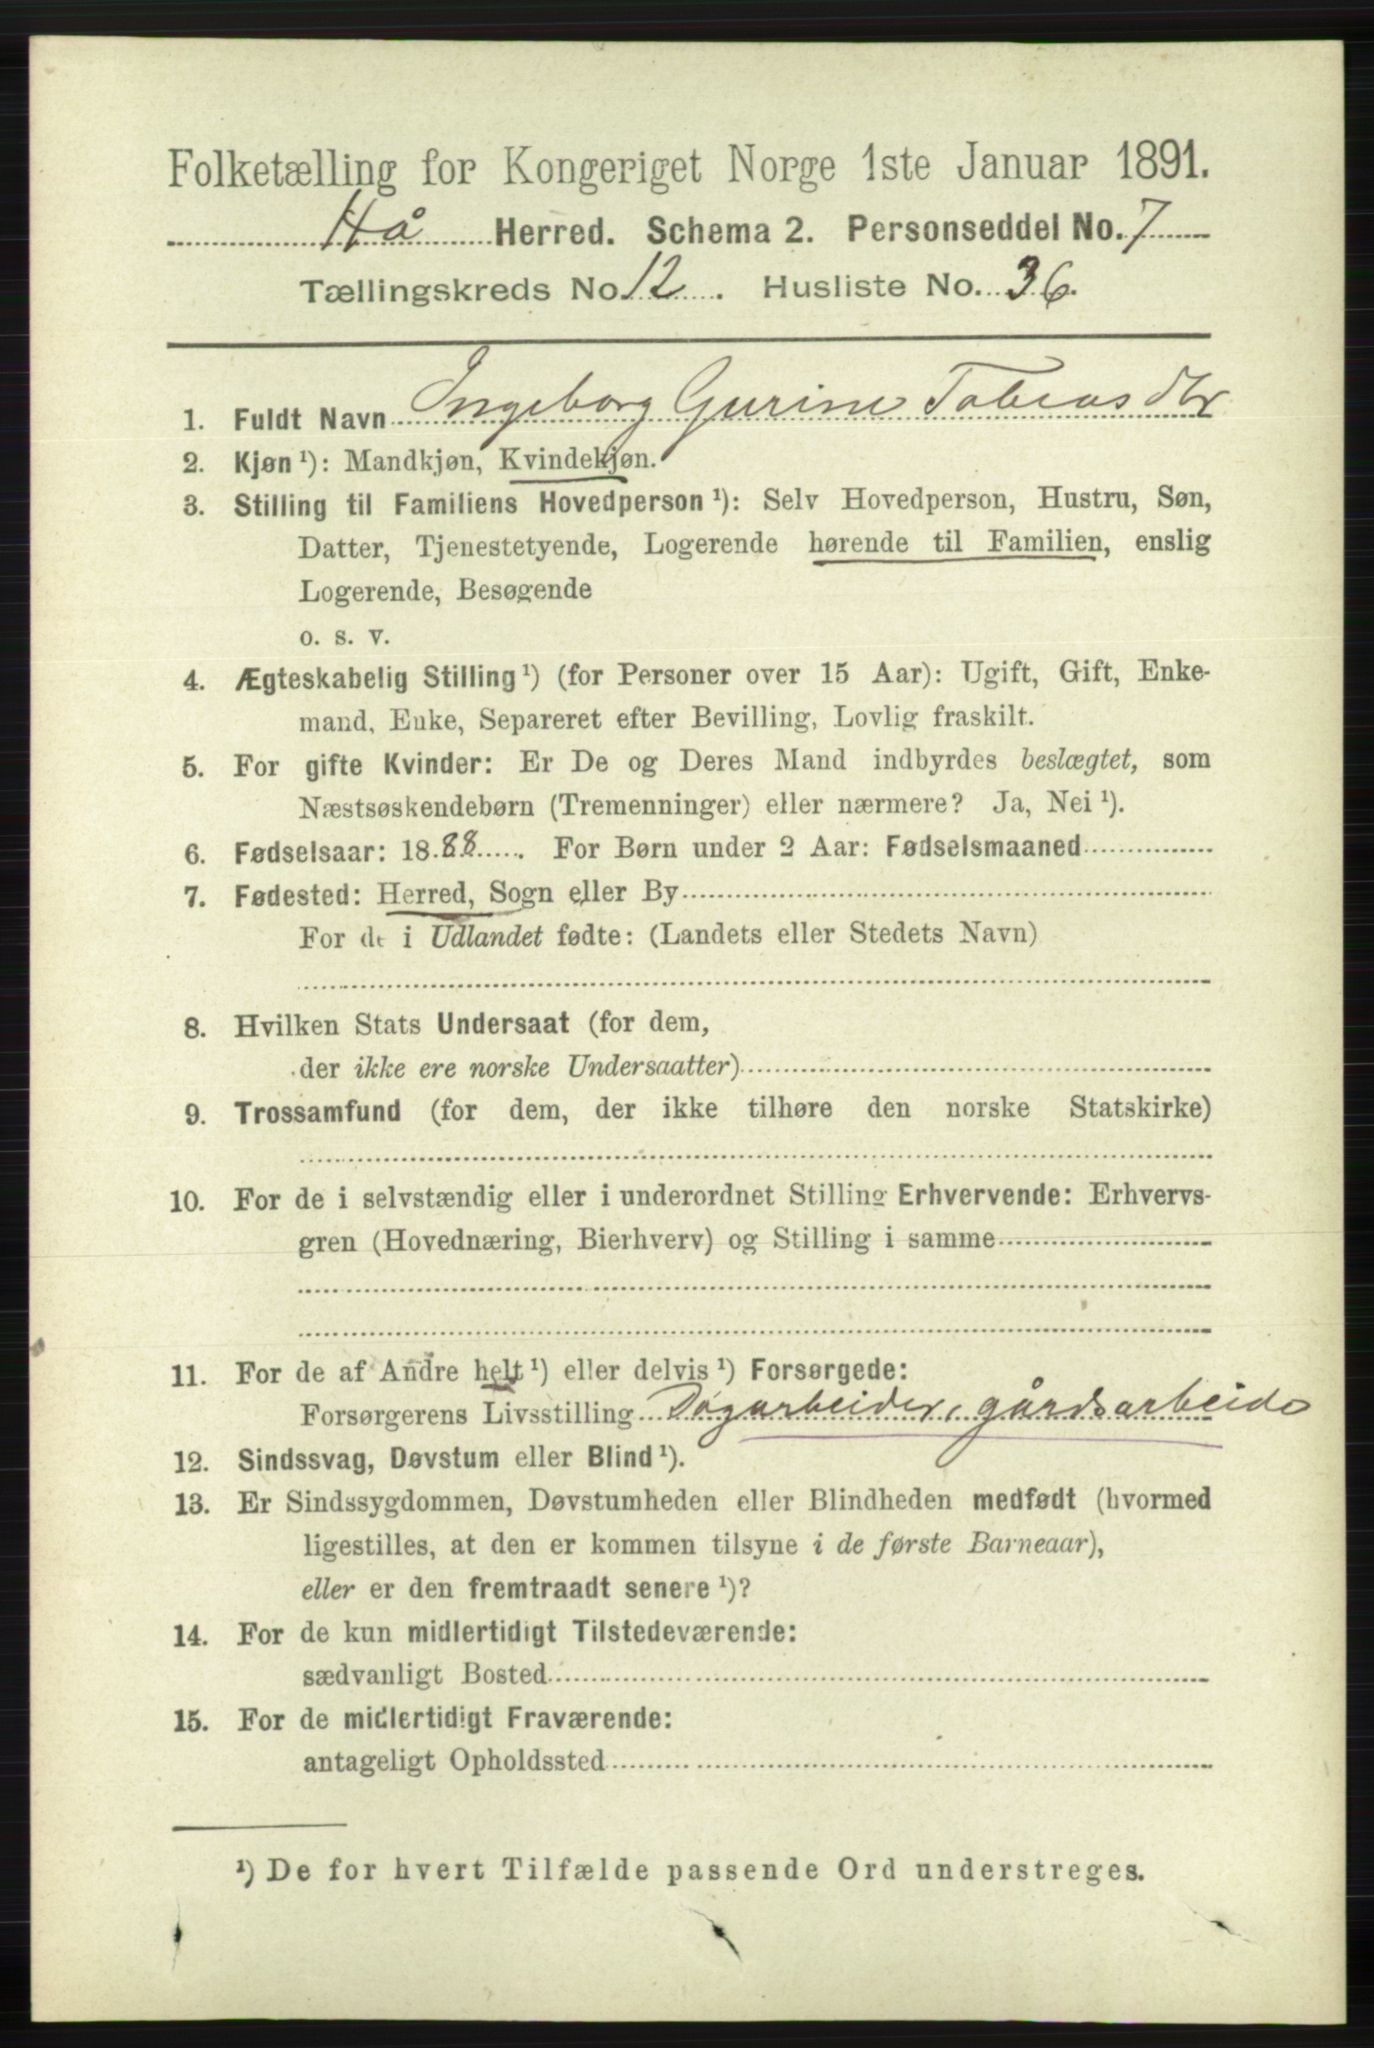 Folketælling for Kongeriget Norge 1ste Januar 1891.
Hå Herred. Schema 2. Personseddel No. 7
Tællingskreds No 12. Husliste No. 36.
1. Fuldt Navn Ingeborg Gurine Tobiasdtr
2. Kjøn ¹): Mandkjøn, Kvindekjøn.
3. Stilling til Familiens Hovedperson ¹): Selv Hovedperson, Hustru, Søn,
Datter, Tjenestetyende, Logerende hørende til Familien, enslig
Logerende, Besøgende
o. s. v.
4. Ægteskabelig Stilling ¹) (for Personer over 15 Aar): Ugift, Gift, Enke-
mand, Enke, Separeret efter Bevilling, Lovlig fraskilt.
5. For gifte Kvinder: Er De og Deres Mand indbyrdes beslægtet, som
Næstsøskendebørn (Tremenninger) eller nærmere? Ja, Nei ¹).
6. Fødselsaar: 1888. For Børn under 2 Aar: Fødselsmaaned
7. Fødested: Herred, Sogn eller By
For de i Udlandet fødte: (Landets eller Stedets Navn)
8. Hvilken Stats Undersaat (for dem,
der ikke ere norske Undersaatter)
9. Trossamfund (for dem, der ikke tilhøre den norske Statskirke)
10. For de i selvstændig eller i underordnet Stilling Erhvervende: Erhvervs-
gren (Hovednæring, Bierhverv) og Stilling i samme
11. For de af Andre helt ¹) eller delvis ¹) Forsørgede:
Forsørgerens Livsstilling Dagarbeider, gårdsarbeide
12. Sindssvag, Døvstum eller Blind ¹).
13. Er Sindssygdommen, Døvstumheden eller Blindheden medfødt (hvormed
ligestilles, at den er kommen tilsyne i de første Barneaar),
eller er den fremtraadt senere ¹)?
14. For de kun midlertidigt Tilstedeværende:
sædvanligt Bosted
15. For de midlertidigt Fraværende:
antageligt Opholdssted
¹) De for hvert Tilfælde passende Ord understreges.